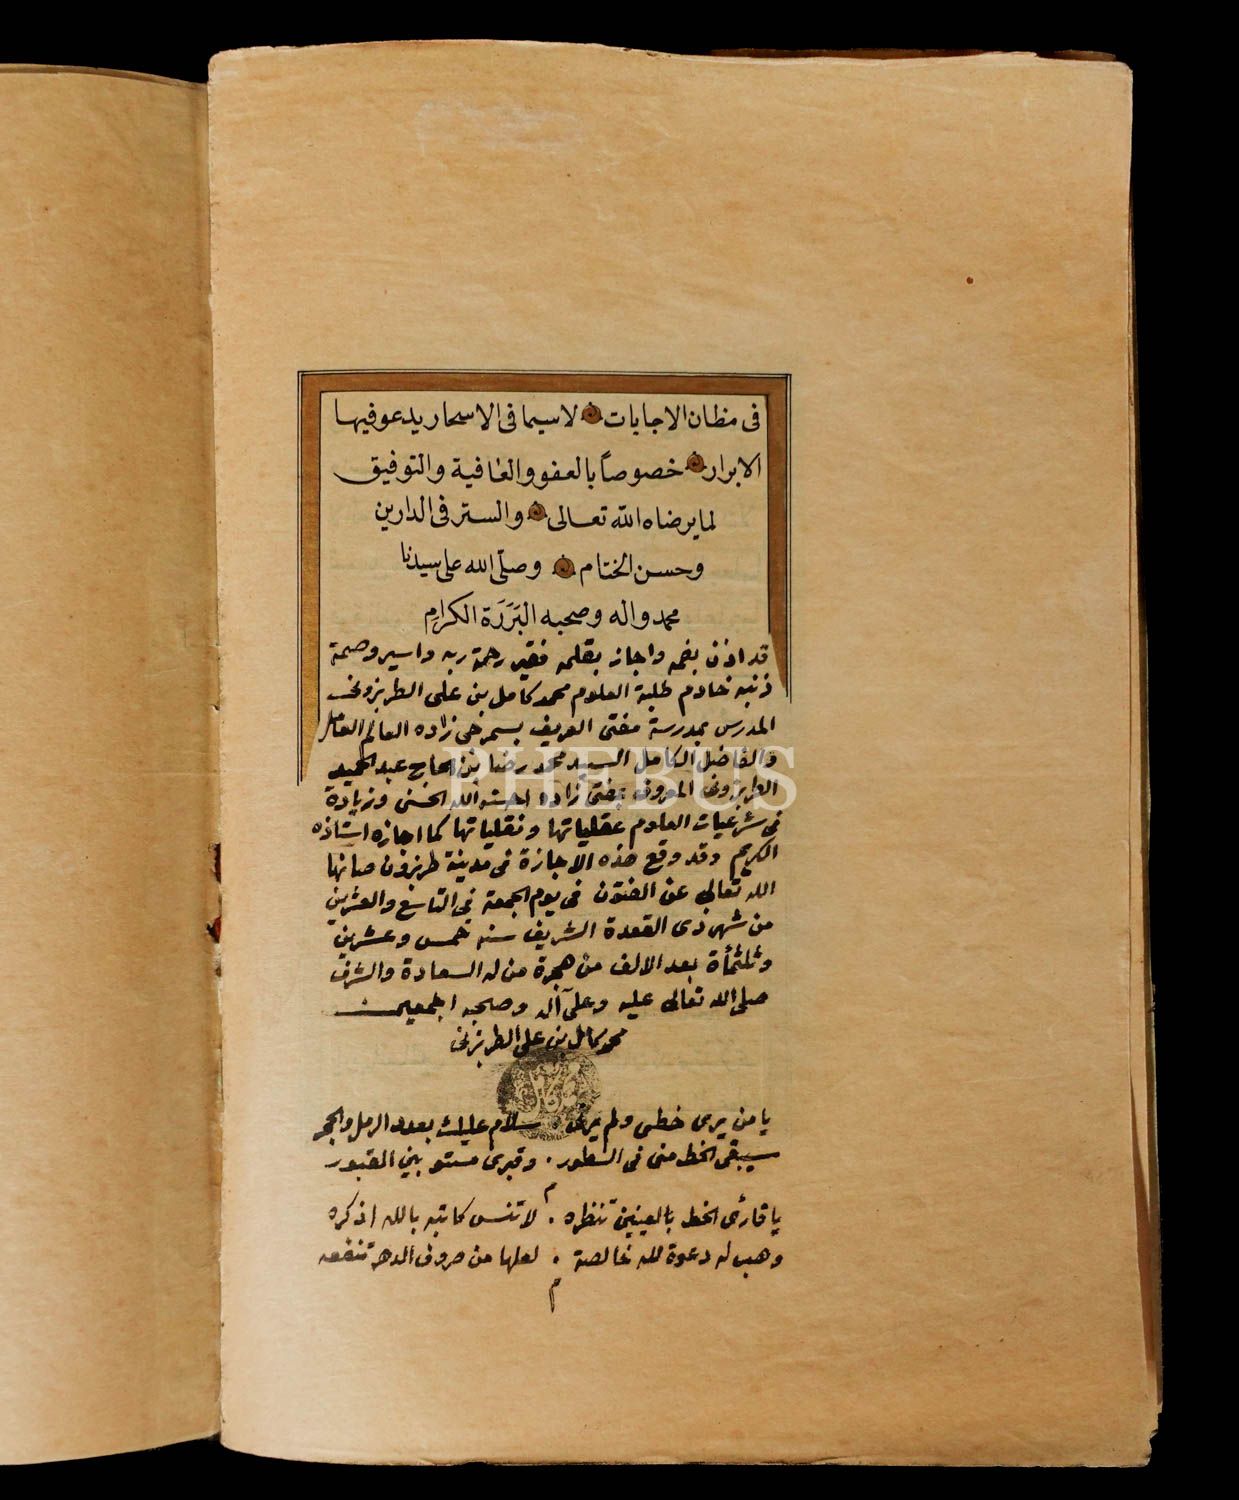 فى مظان الاجابات لاسيما فى الاسحار يدعو فيها
الابرار خصوصاً بالعفو والعافية والتوفيق
لما يرضاه الله تعالى والستر فى الدارين
وحسن الختام وصلّى الله على سيدنا
محمد واله وصحبه البَرَرَة الكرامِ
قد اذن بفمه واجاز بقلمه فقير رحمة ربه واسير وصمة
ذنبه خادم طلبة العلوم محمد كامل بن على الطربزونى
المدرس بمدرسة مفتى العريف بسمرخى زاده العالم العامل
والفاضل الكامل السيد محمد رضا بن الحاج عبد الحميد
الطربزونى المعروف بمفتى زاده احسنه الله الحسنى وزيادة
فى شرعيات العلوم عقلياتها ونقلياتها كما اجازه استاذه
الكريم وقد وقع هذه الاجازة فى مدينة طربزون صانها
الله تعالى عن الفتون فى يوم الجمعة فى التاسع والعشرين
من شهر ذى القعدة الشريف سنه خمس وعشرين
وثلثمأة بعد الالف من هجرة من له السعادة والشرف
صلى الله تعالى عليه وعلى آله وصحبه اجمعين
محمد كامل بن على الطربزنى
PHEBUS
يا من يرى خطى ولم يرنى . سلام عليك بعدد الرمل والحجر
سيبقى الخط منى فى السطور . وقبرى مستو بين القبور
م
يا قارئ الخط بالعينين تنظره . لا تنس كاتبه بالله اذكره
وهب له دعوة لله خالصة . لعلها من صروف الدهر تنفعه
م